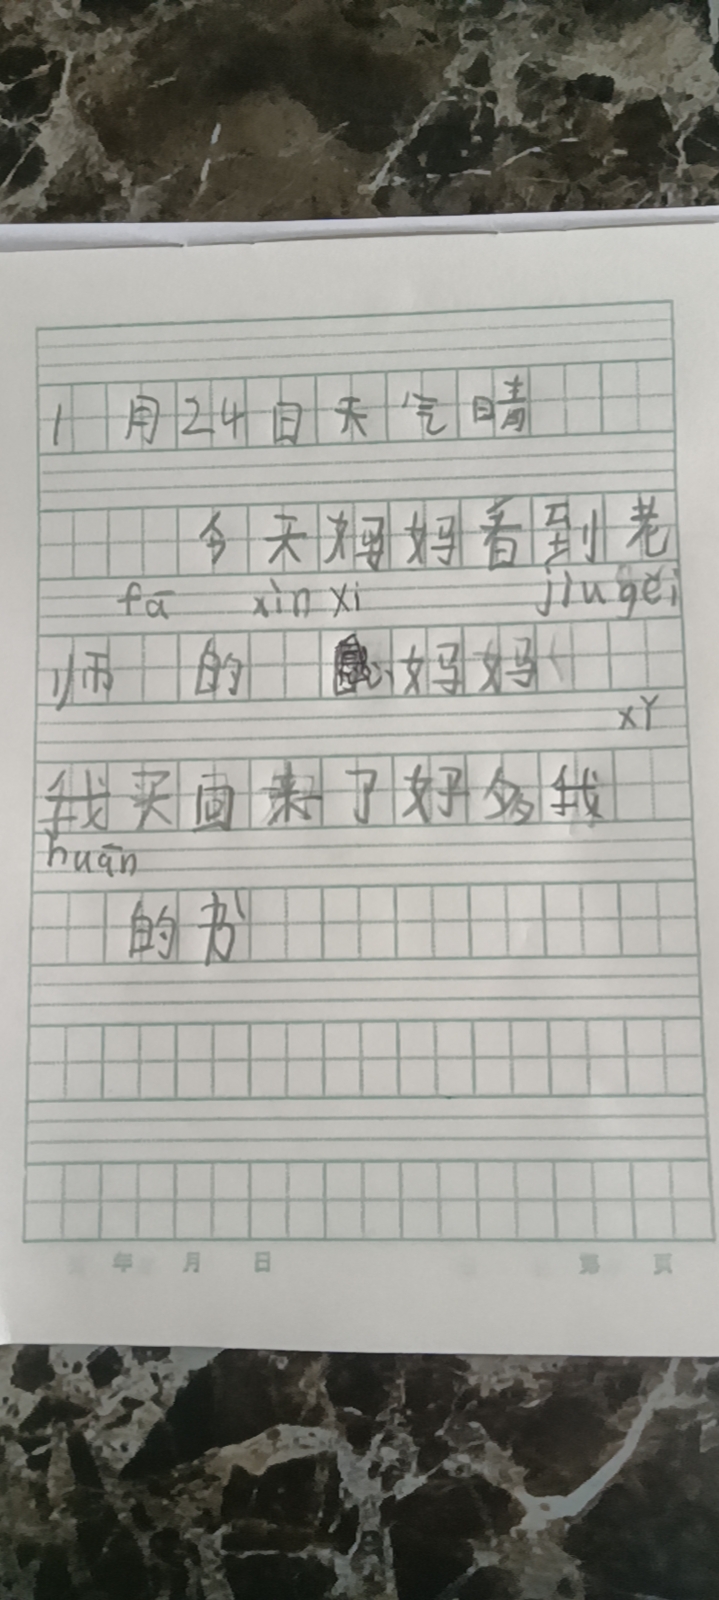 1月24日天气晴
今天妈妈看到老
fā xìn xi jiù gěi
师 的 妈妈
xǐ
我买回来了好多我
huān
的书
年 月 日 第 页